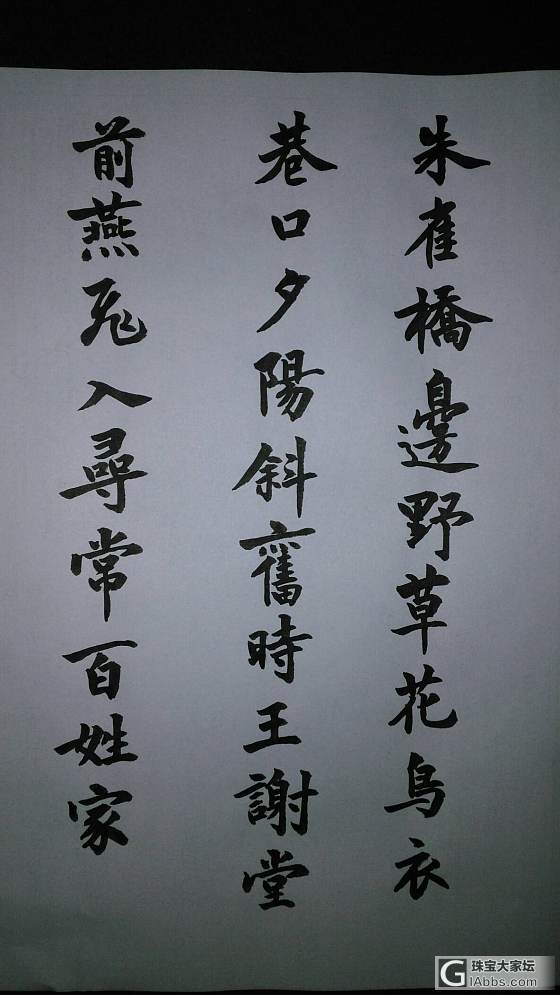 朱雀橋邊野草花烏衣
巷口夕陽斜舊時王謝堂
前燕飛入尋常百姓家
珠宝大家坛
GIAbbs.com